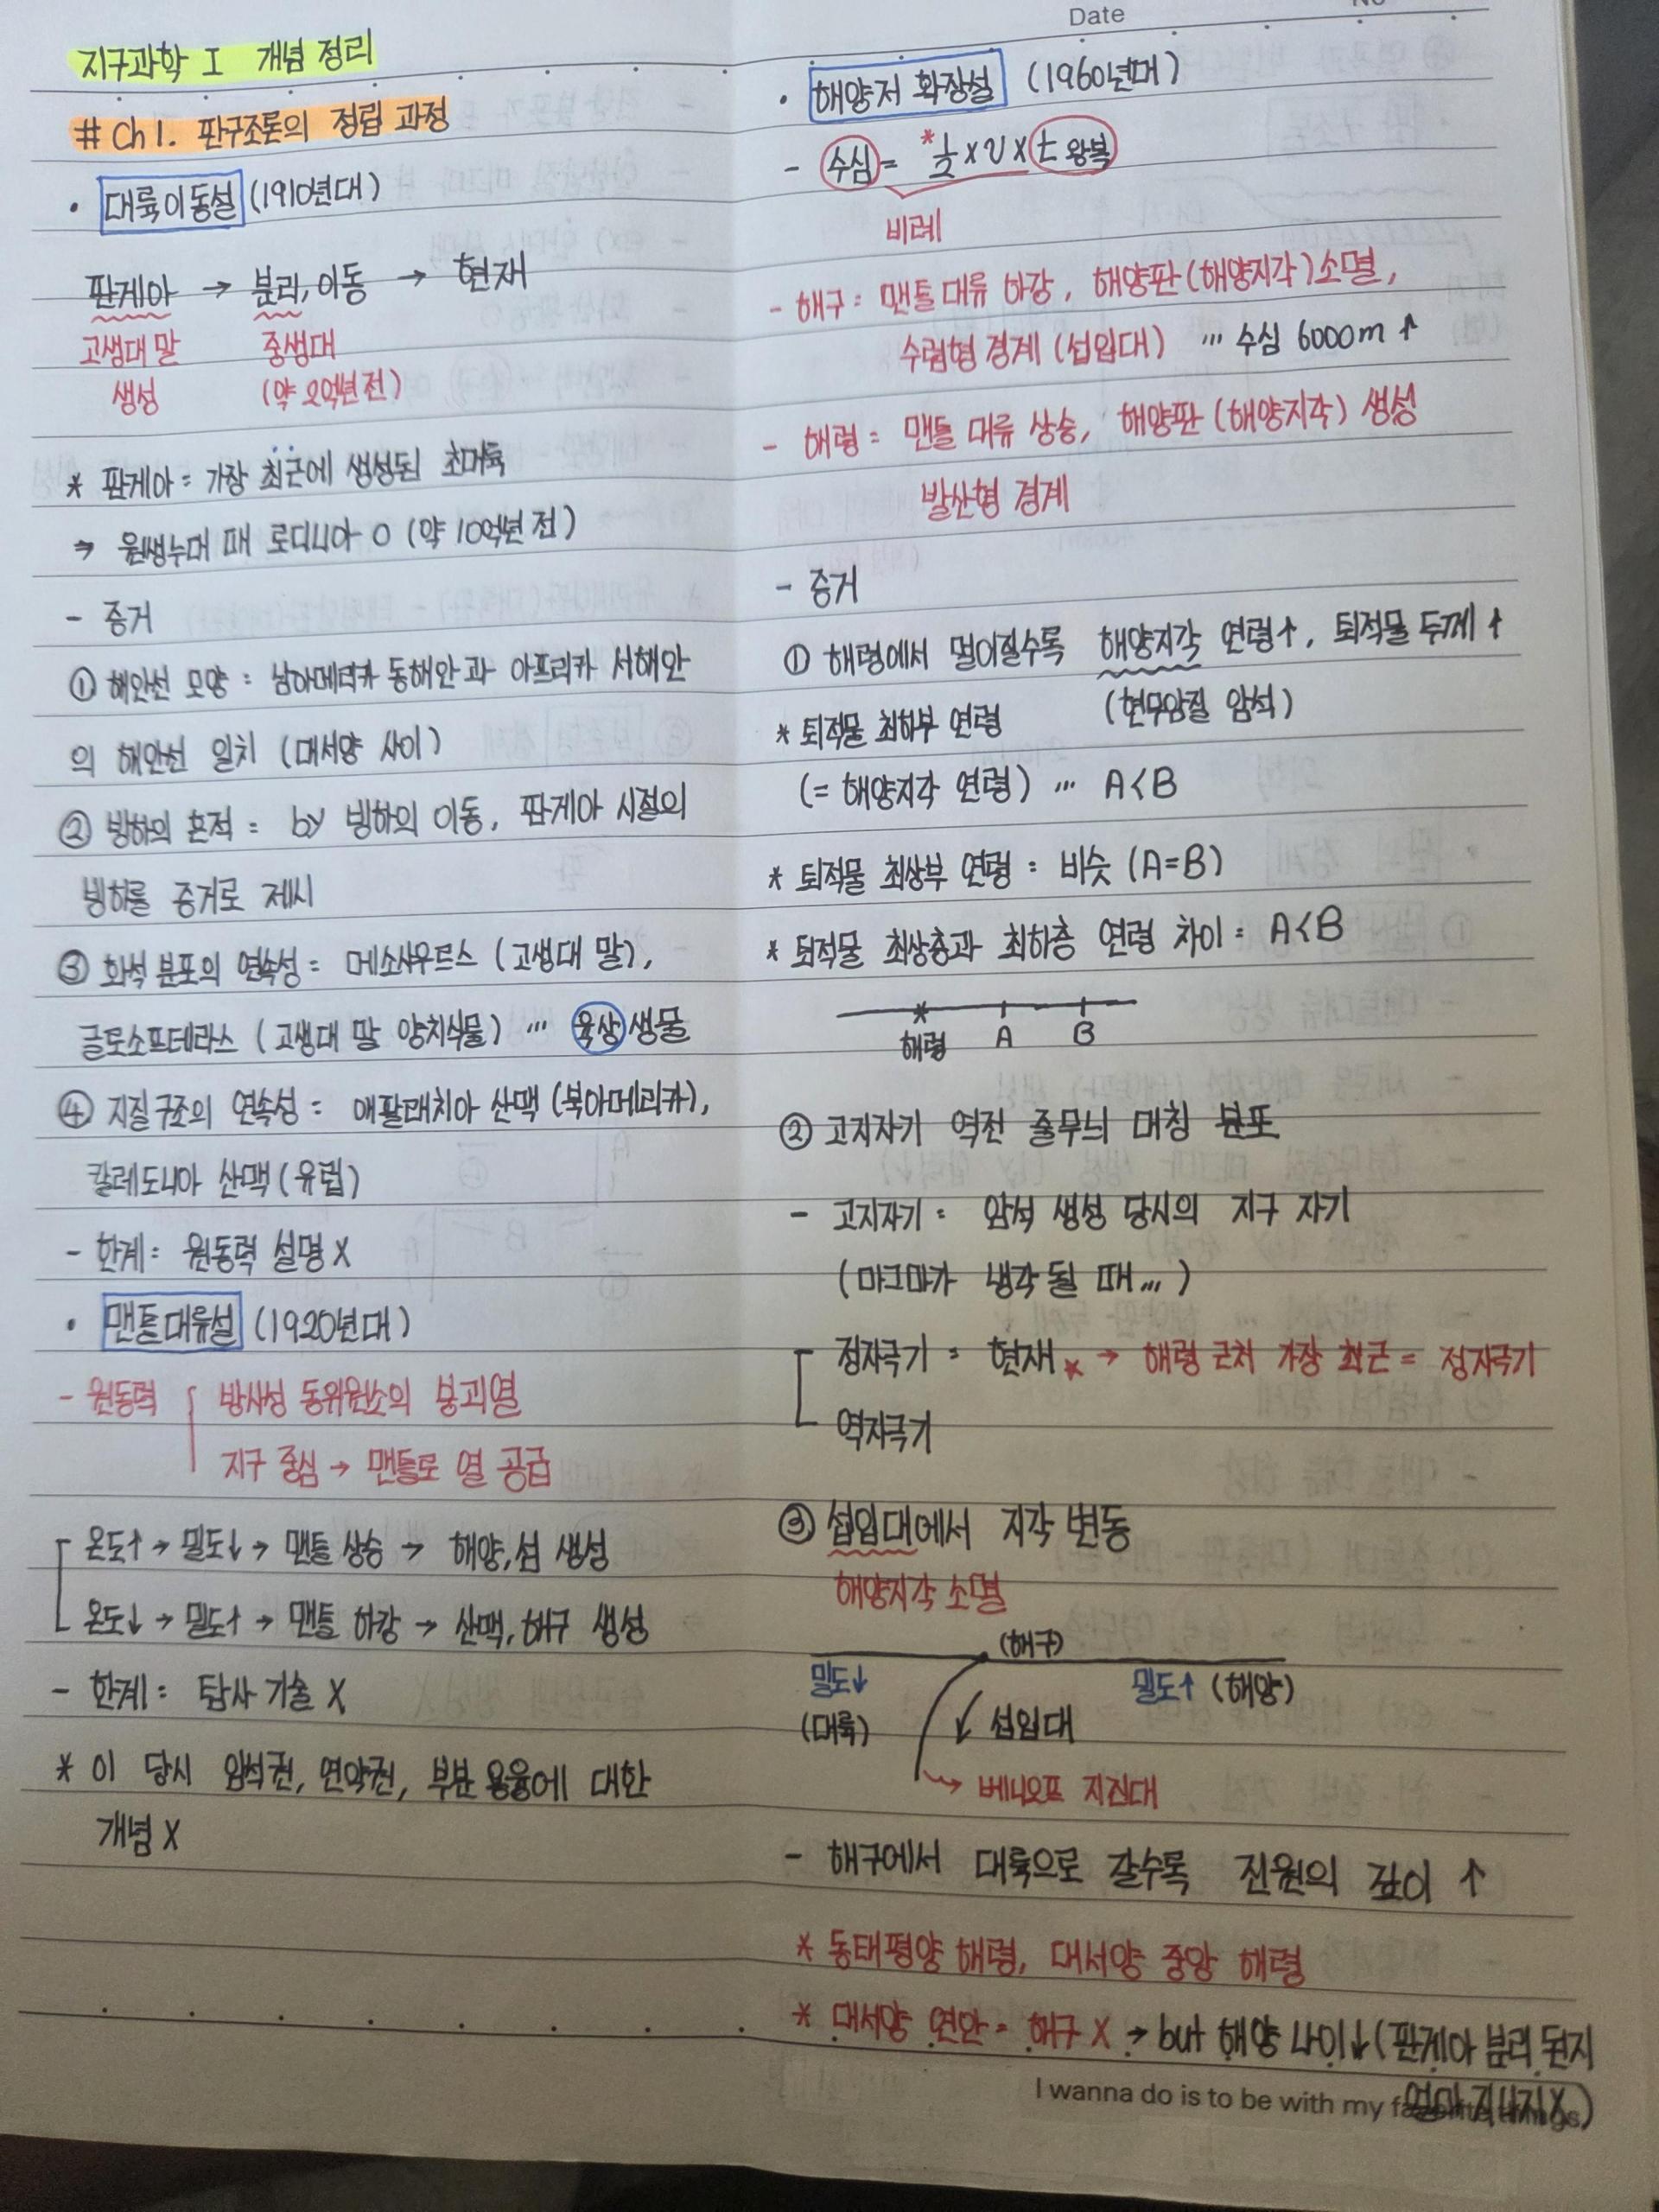 지구과학 I 개념 정리
# Ch 1. 판구조론의 정립 과정
· 대륙이동설 (1910년대)
판게아 → 분리, 이동 → 현재
고생대 말 중생대
생성 (약 2억년 전)
* 판게아 = 가장 최근에 생성된 초대륙
→ 원생누대 때 로디니아 O (약 10억년 전)
- 증거
① 해안선 모양 : 남아메리카 동해안과 아프리카 서해안
의 해안선 일치 (대서양 사이)
② 빙하의 흔적 = by 빙하의 이동, 판게아 시절의
빙하를 증거로 제시
③ 화석 분포의 연속성 = 메소사우르스 (고생대 말),
글로소프테라스 (고생대 말 양치식물) … 육상 생물
④ 지질구조의 연속성 = 애팔래치아 산맥 (북아메리카),
칼레도니아 산맥 (유럽)
- 한계 : 원동력 설명 X
· 맨틀대류설 (1920년대)
- 원동력 방사성 동위원소의 붕괴열
지구 중심 → 맨틀로 열 공급
온도↑ → 밀도↓ → 맨틀 상승 → 해양, 섬 생성
온도↓ → 밀도↑ → 맨틀 하강 → 산맥, 해구 생성
- 한계 : 탐사 기술 X
* 이 당시 암석권, 연약권, 부분 용융에 대한
개념 X
Date No
· 해양저 확장설 (1960년대)
- 수심 = *½ × v × t 왕복
비례
- 해구 : 맨틀 대류 하강, 해양판(해양지각)소멸,
수렴형 경계 (섭입대) … 수심 6000m ↑
- 해령 = 맨틀 대류 상승, 해양판 (해양지각) 생성
발산형 경계
- 증거
① 해령에서 멀어질수록 해양지각 연령↑, 퇴적물 두께 ↑
* 퇴적물 최하부 연령 (현무암질 암석)
(= 해양지각 연령) … A<B
* 퇴적물 최상부 연령 : 비슷 (A=B)
* 퇴적물 최상층과 최하층 연령 차이 = A<B
해령 A B
② 고지자기 역전 줄무늬 대칭 분포
- 고지자기 = 암석 생성 당시의 지구 자기
(마그마가 냉각 될 때…)
정자극기 = 현재 * → 해령 근처 가장 최근 = 정자극기
역자극기
③ 섭입대에서 지각 변동
해양지각 소멸
(해구)
밀도↓ 밀도↑ (해양)
(대륙) ↙ 섭입대
→ 베니오프 지진대
- 해구에서 대륙으로 갈수록 진원의 깊이 ↑
* 동태평양 해령, 대서양 중앙 해령
* 대서양 연안 = 해구 X → but 해양 나이↓ (판게아 분리 된지
얼마 지나지 X)
I wanna do is to be with my favorite things.